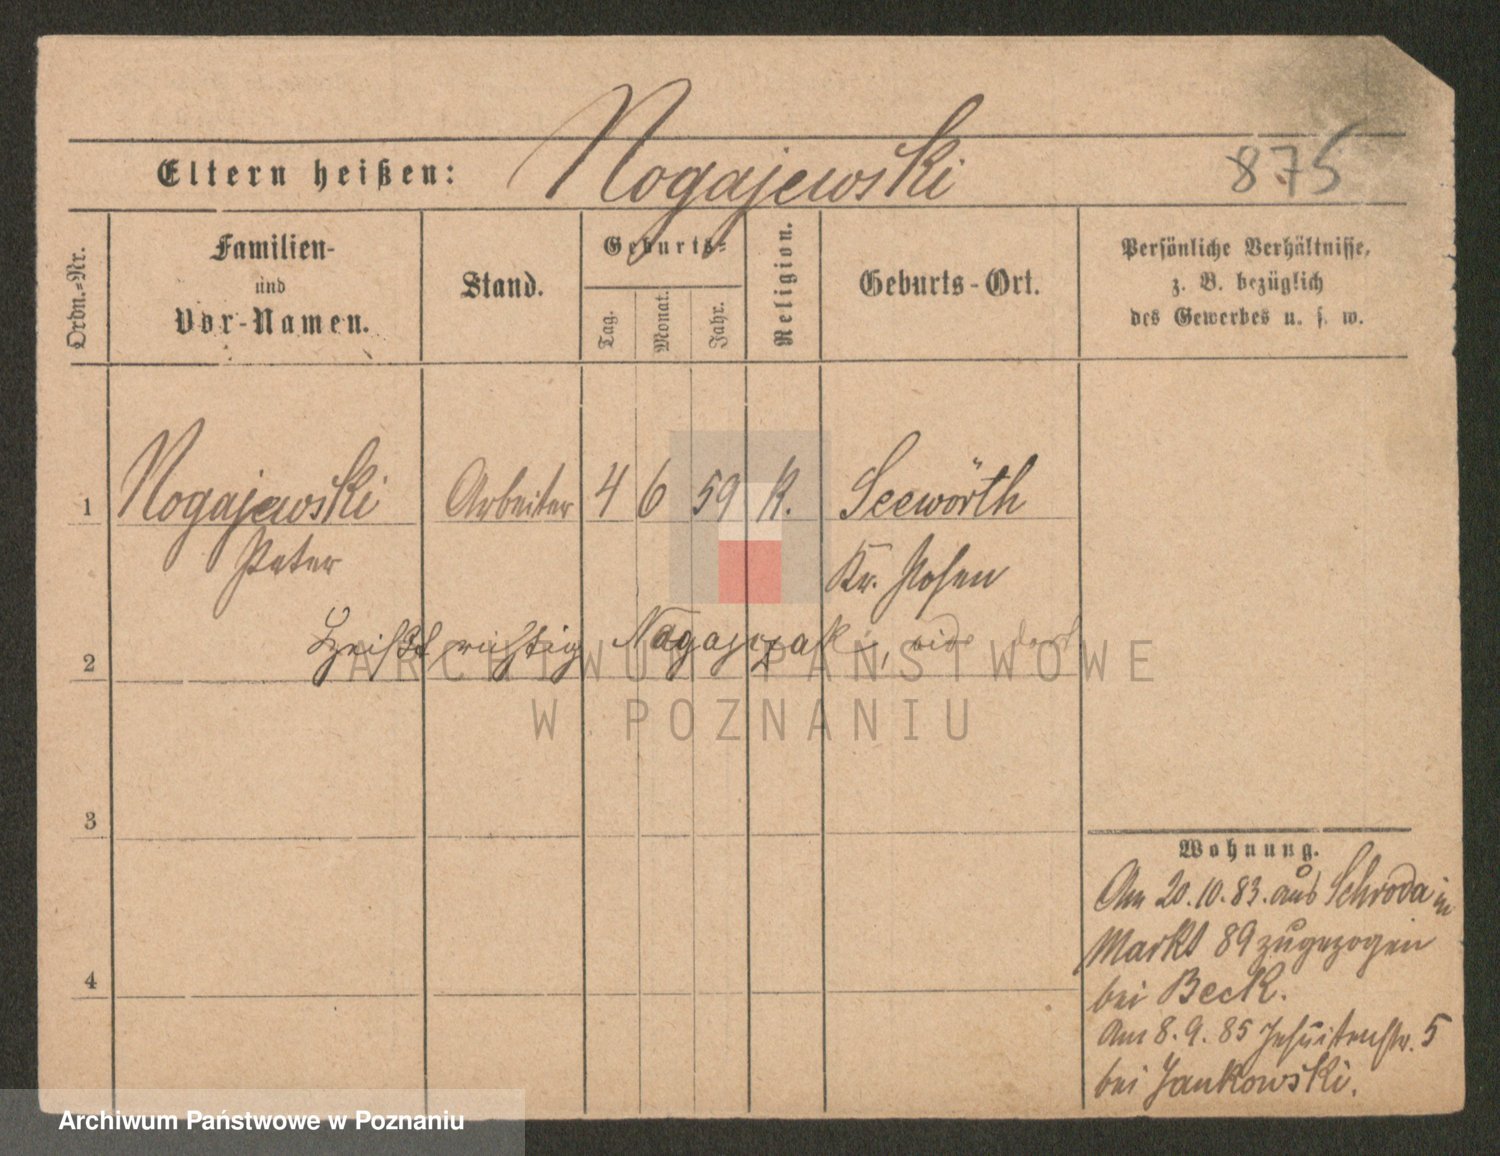 Nogajewski
Eltern heißen:
875
Ordn.=Nr.
Familien-
und
Vor-Namen.
Stand.
Geburts=
Tag.
Monat.
Jahr.
Religion.
Geburts-Ort.
Persönliche Verhältnisse,
z. B. bezüglich
des Gewerbes u. s. w.
1 Nogajewski Arbeiter 4 6 59 K. Seewörth
Peter Kr. Posen
heißt richtig Nagajczak, vide dort
2
ARCHIWUM PAŃSTWOWE
W POZNANIU
3
Wohnung.
Am 20.10.83. aus Schroda in
Markt 89 zugezogen
4
bei Beck.
Am 8.9.85 Jesuitenstr. 5
bei Jankowski.
Archiwum Państwowe w Poznaniu